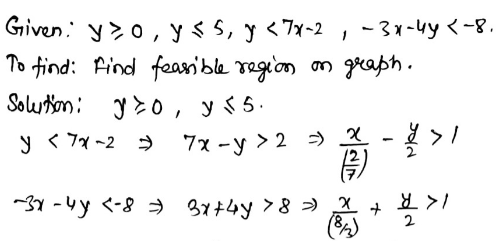 Given: y ≥ 0, y ≤ 5, y < 7x-2, -3x-4y < -8.
To find: Find feasible region on graph.
Solution: y ≥ 0, y ≤ 5.
y < 7x-2 ⇒ 7x-y > 2 ⇒ x/(2/7) - y/2 > 1
-3x-4y <-8 ⇒ 3x+4y > 8 ⇒ x/(8/3) + y/2 > 1